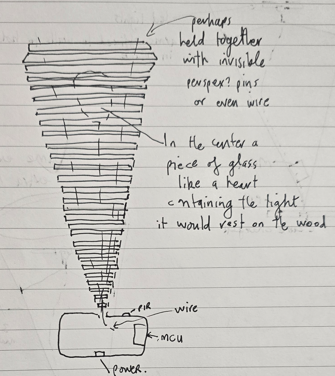 perhaps
held together
with invisible
perspex? pins
or even wire
In the center a
piece of glass
like a heart
containing the light
it would rest on the wood
PIR
wire
MCU
power.